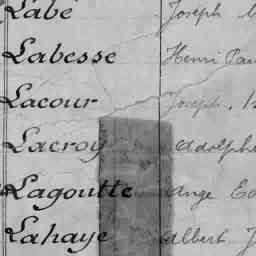 Labé Joseph
Labesse Henri Pau
Lacour Joseph
Lacroy Adolphe
Lagoutte Ange
Lahaye Albert J